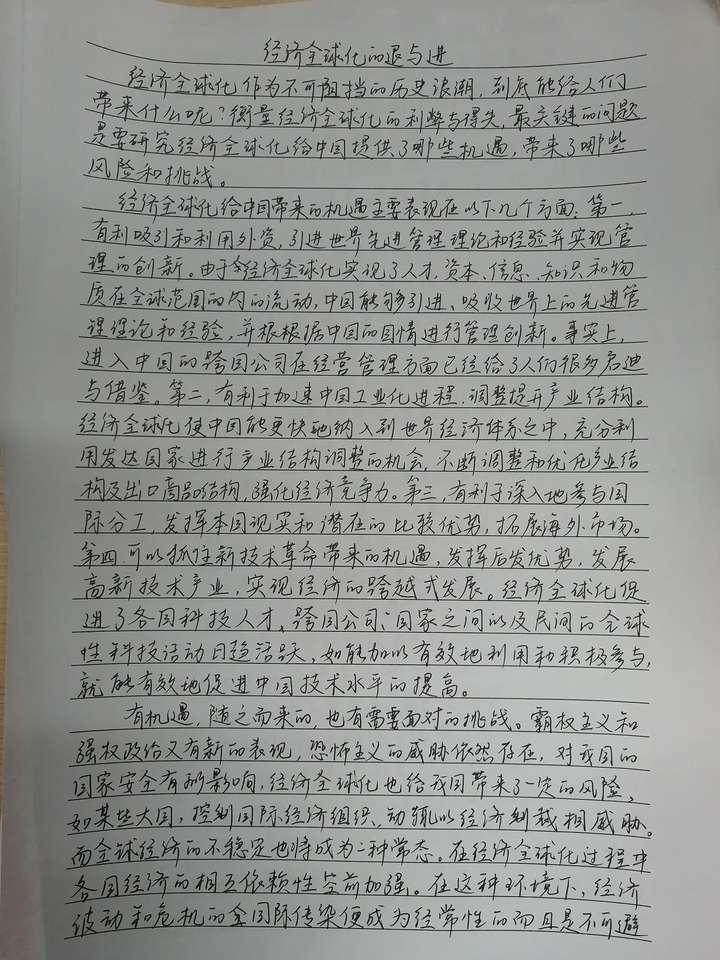 经济全球化的退与进
经济全球化作为不可阻挡的历史浪潮,到底能给人们
带来什么呢?衡量经济全球化的利弊与得失,最关键的问题
是要研究经济全球化给中国提供了哪些机遇,带来了哪些
风险和挑战。
经济全球化给中国带来的机遇主要表现在以下几个方面:第一,
有利吸引和利用外资,引进世界先进管理理论和经验并实现管
理的创新。由于经济全球化实现了人才、资本、信息、知识和物
质在全球范围的内的流动,中国能够引进、吸收世界上的先进管
理理论和经验,并根根据中国的国情进行管理创新。事实上,
进入中国的跨国公司在经营管理方面已经给了人们很多启迪
与借鉴。第二,有利于加速中国工业化进程,调整提升产业结构。
经济全球化使中国能更快地纳入到世界经济体系之中,充分利
用发达国家进行产业结构调整的机会,不断调整和优化产业结
构及出口商品结构,强化经济竞争力。第三,有利于深入地参与国
际分工,发挥本国现实和潜在的比较优势,拓展海外市场。
第四可以抓住新技术革命带来的机遇,发挥后发优势,发展
高新技术产业,实现经济的跨越式发展。经济全球化促
进了各国科技人才、跨国公司、国家之间以及民间的全球
性科技活动日趋活跃,如能加以有效地利用和积极参与,
就能有效地促进中国技术水平的提高。
有机遇,随之而来的,也有需要面对的挑战。霸权主义和
强权政治又有新的表现,恐怖主义的威胁依然存在,对我国的
国家安全有所影响,经济全球化也给我国带来了一定的风险,
如某些大国,控制国际经济组织,动辄以经济制裁相威胁。
而全球经济的不稳定也将成为一种常态。在经济全球化过程中
各国经济的相互依赖性空前加强。在这种环境下,经济
波动和危机的全国际传染便成为经常性的而且是不可避